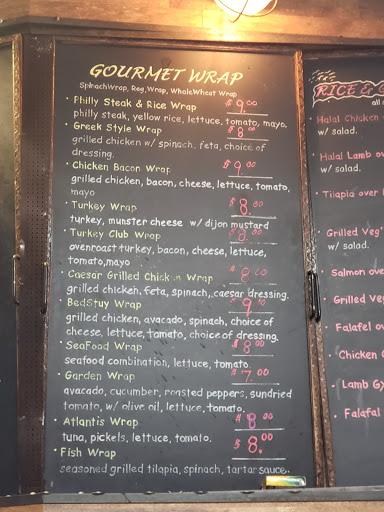 GOURMET WRAP
SpinachWrap, Reg.Wrap, WholeWheat Wrap
• Philly Steak & Rice Wrap $9.00
philly steak, yellow rice, lettuce, tomato, mayo.
• Greek Style Wrap $8.00
grilled chicken w/ spinach, feta, choice of
dressing.
• Chicken Bacon Wrap $9.00
grilled chicken, bacon, cheese, lettuce, tomato,
mayo
• Turkey Wrap $8.00
turkey, munster cheese w/ dijon mustard
• Turkey Club Wrap $8.00
ovenroast turkey, bacon, cheese, lettuce,
tomato,mayo
• Caesar Grilled Chicken Wrap $8.00
grilled chicken, feta, spinach, caesar dressing.
• BedStuy Wrap $9.50
grilled chicken, avacado, spinach, choice of
cheese, lettuce, tomato, choice of dressing.
• SeaFood Wrap $8.00
seafood combination, lettuce, tomato.
• Garden Wrap $7.00
avacado, cucumber, roasted peppers, sundried
tomato, w/ olive oil, lettuce, tomato.
• Atlantis Wrap $8.00
tuna, pickels, lettuce, tomato.
• Fish Wrap $8.00
seasoned grilled tilapia, spinach, tartar sauce.
RICE &
all
Halal Chicken
w/ salad.
• Halal Lamb ov
w/ salad.
• Tilapia over
• Grilled Veg
w/ salad.
• Salmon ove
• Grilled Veg
• Falafel ov
• Chicken
• Lamb Gy
• Falafal